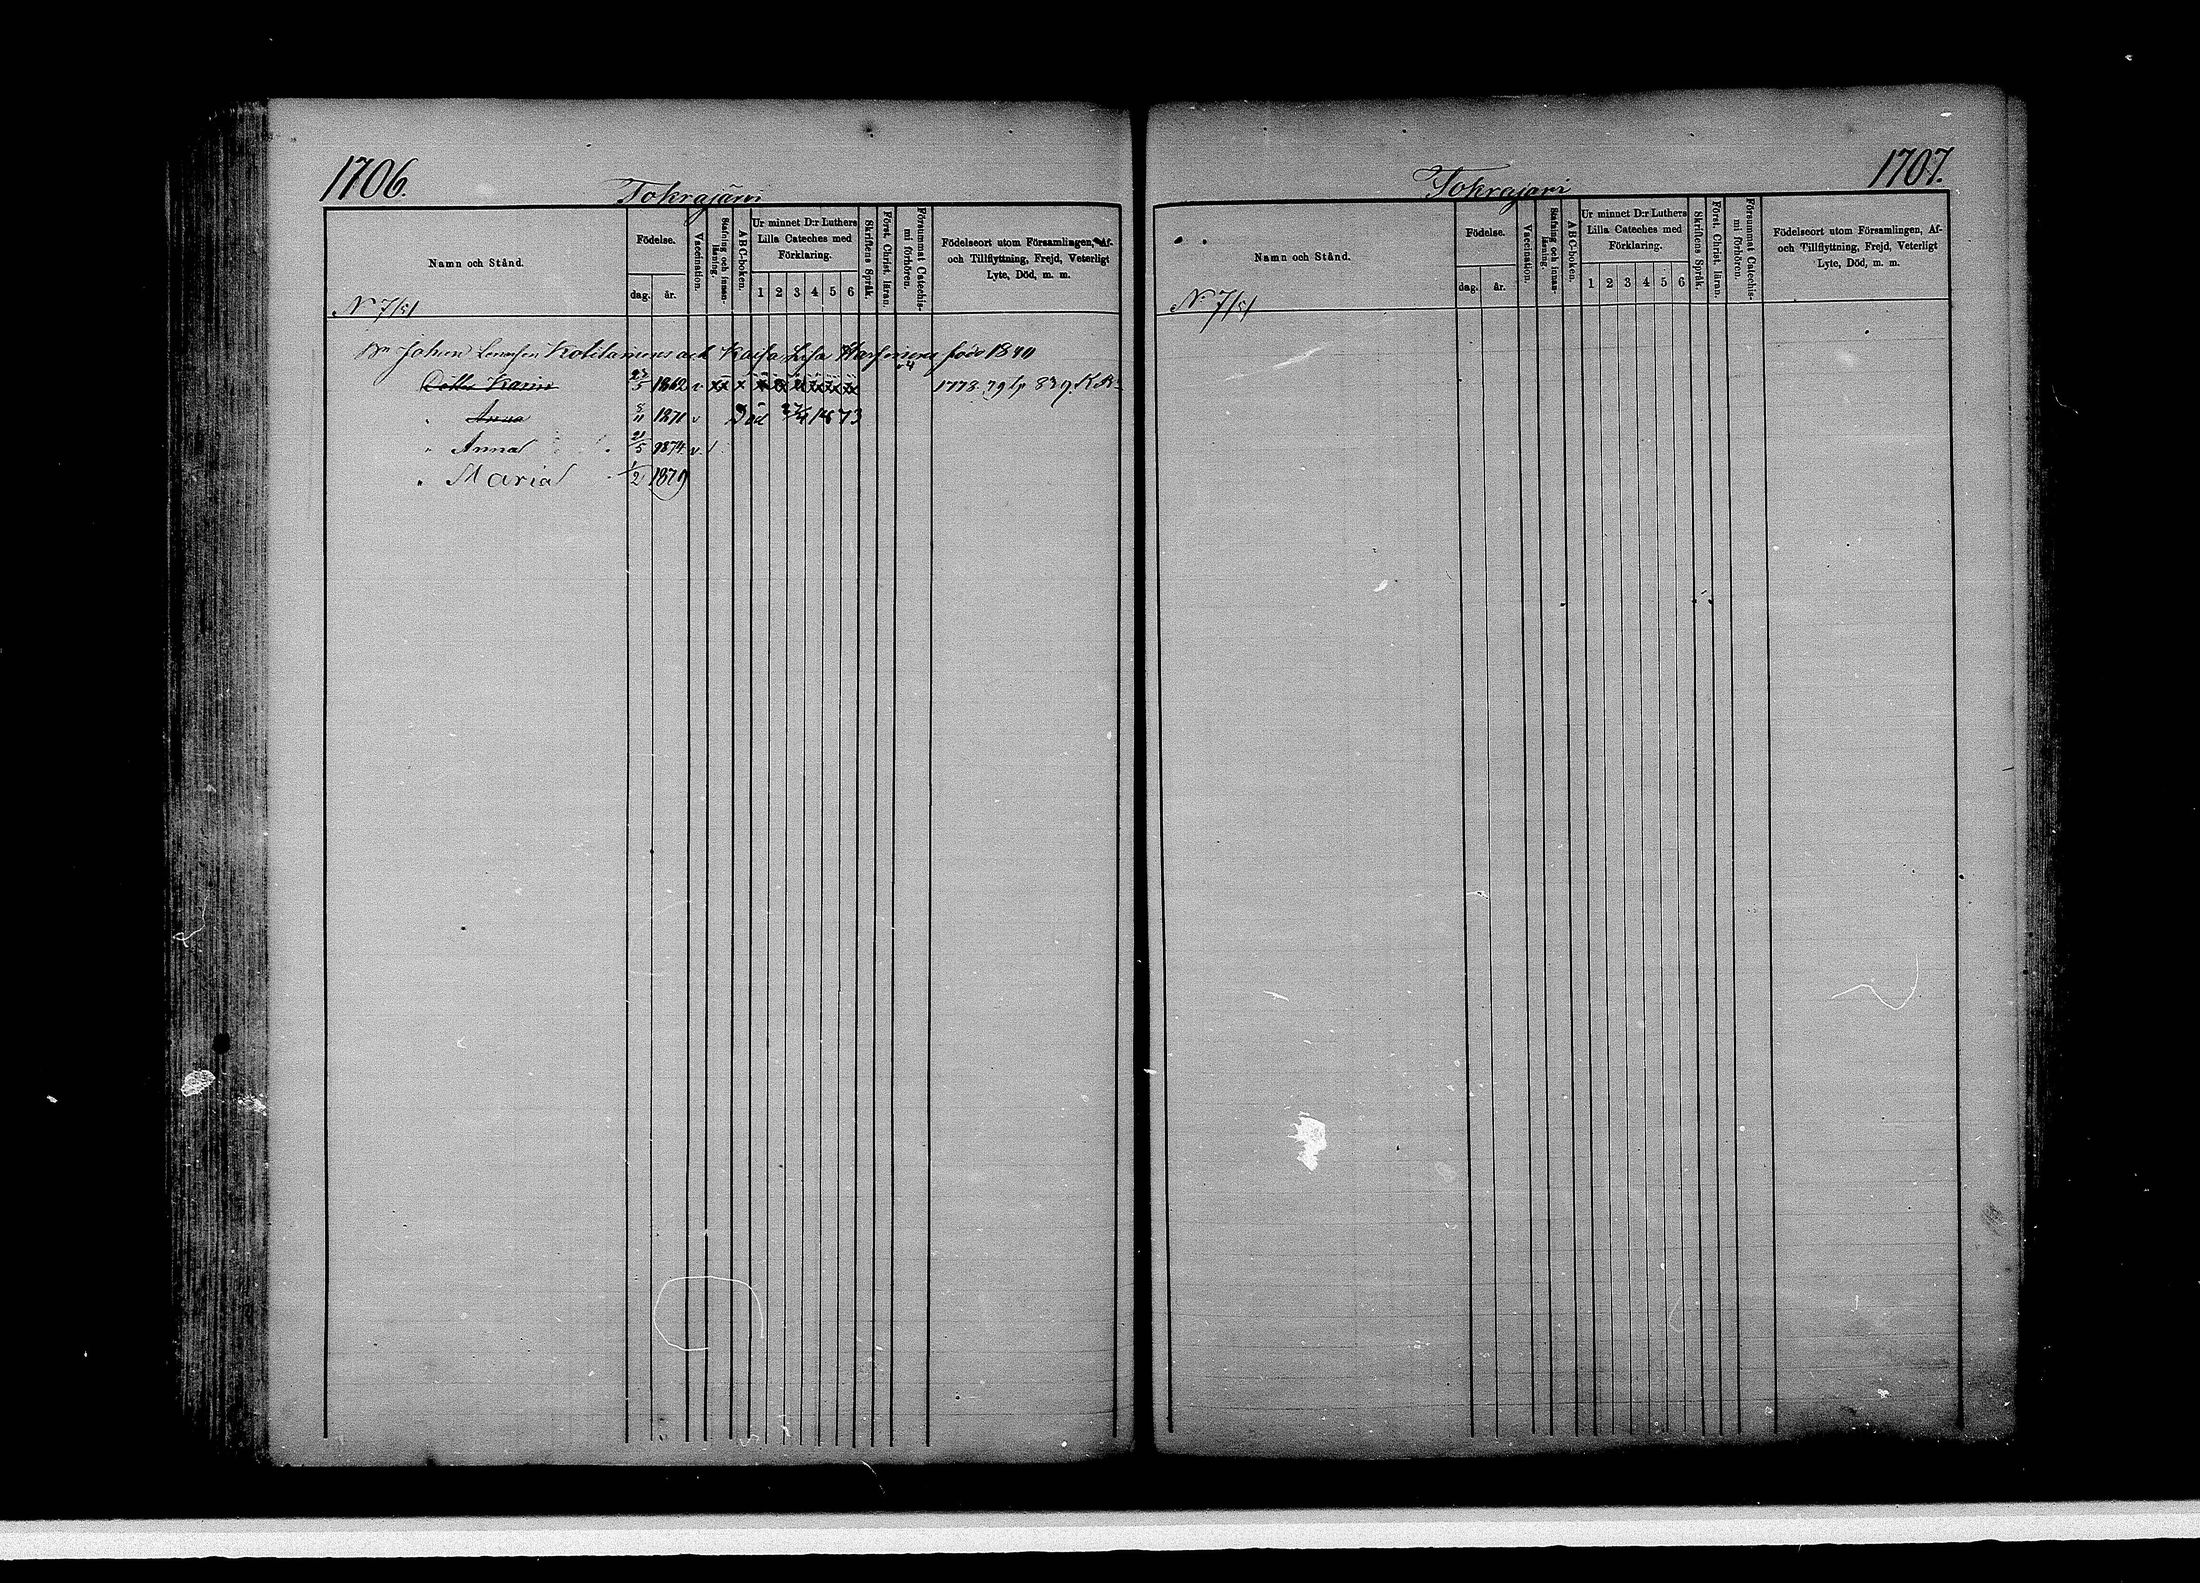 1706.
Tokrajärvi
Namn och Stånd.
Födelse.
dag. år.
Vaccination.
Stafning och innanläsning.
ABC-boken.
Ur minnet D:r Luthers Lilla Cateches med Förklaring.
1 2 3 4 5 6
Skriftens Språk.
Först. Christ. läran.
Försummat Catechismi förhören.
Födelseort utom Församlingen, Af- och Tillflyttning, Frejd, Veterligt Lyte, Död, m. m.
N 7/51
Johan Kaisa Lisa född 1840
Karin 23/5 1862 v xx x 1778. 79
" Anna 8/11 1871 v Död 27/4 1873
" Anna 21/5 1874 v
" Maria 1/2 1879
1707.
Tokrajärvi
Namn och Stånd.
Födelse.
dag. år.
Vaccination.
Stafning och innanläsning.
ABC-boken.
Ur minnet D:r Luthers Lilla Cateches med Förklaring.
1 2 3 4 5 6
Skriftens Språk.
Först. Christ. läran.
Försummat Catechismi förhören.
Födelseort utom Församlingen, Af- och Tillflyttning, Frejd, Veterligt Lyte, Död, m. m.
N 7/51